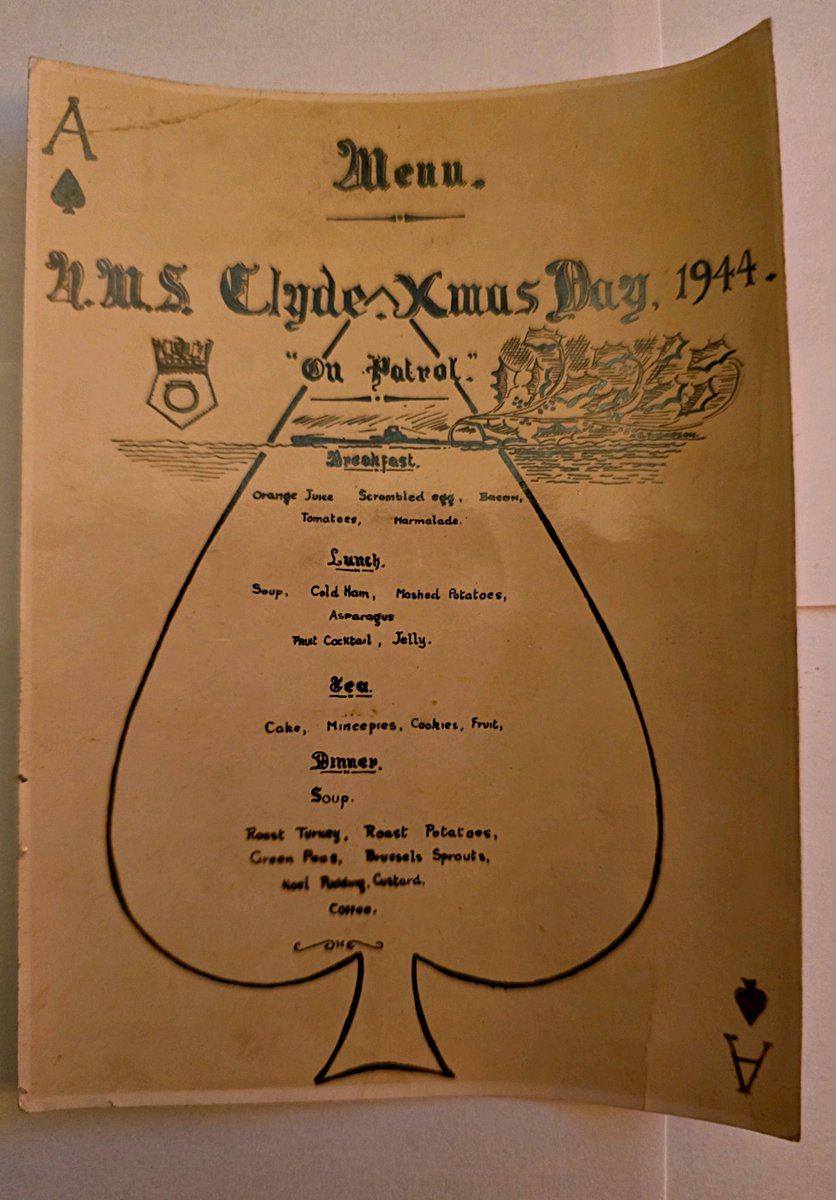 A
Menu.
H.M.S. Clyde. Xmas Day, 1944.
"On Patrol."
Breakfast.
Orange Juice Scrambled egg, Bacon,
Tomatoes, Marmalade.
Lunch.
Soup, Cold Ham, Mashed Potatoes,
Asparagus
Fruit Cocktail, Jelly.
Tea.
Cake, Mincepies, Cookies, Fruit,
Dinner.
Soup.
Roast Turkey, Roast Potatoes,
Green Peas, Brussels Sprouts,
Noel Pudding, Custard,
Coffee,
A